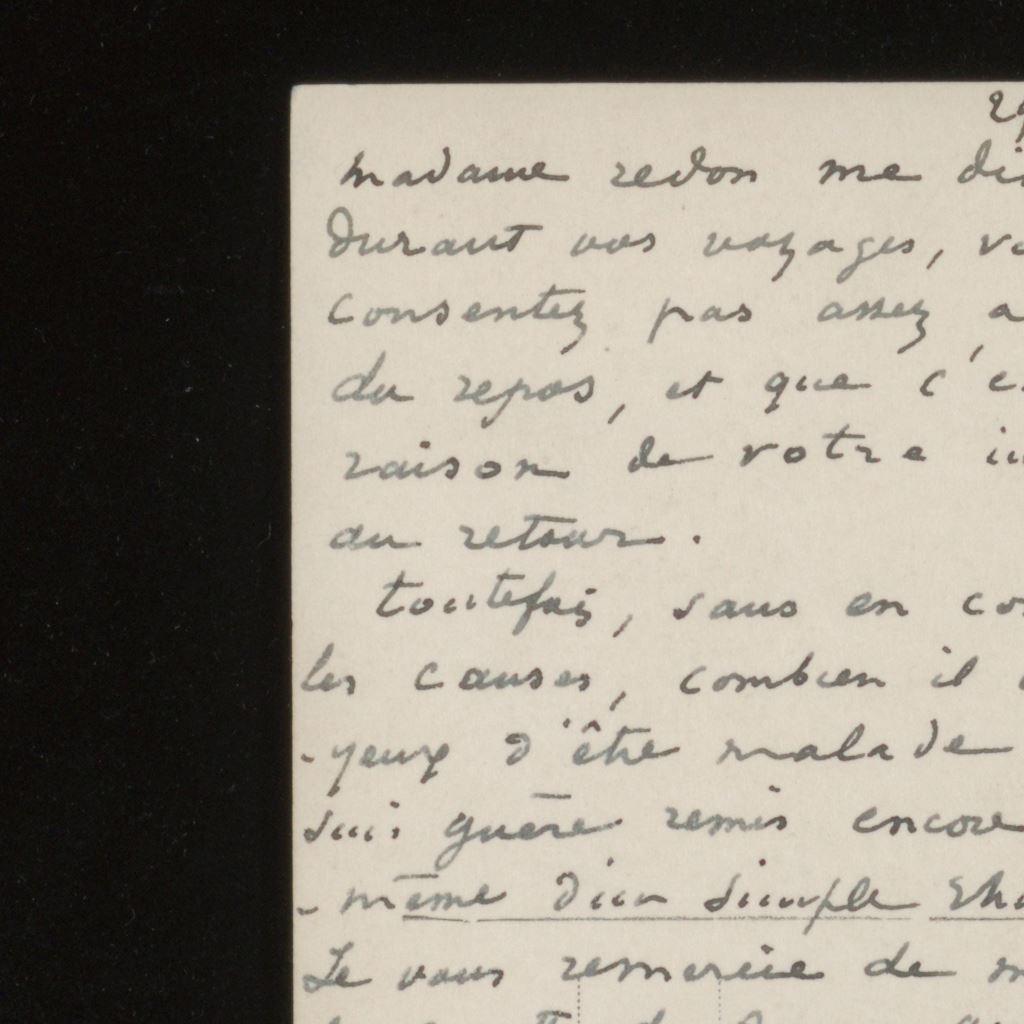 29
madame redon me di
durant vos voyages, vo
consentez pas assez a
du repos, et que c'es
raison de votre in
au retour.
toutefois, sans en co
les causes, combien il
-yeux d'être malade
suis guère remis encore
-même d'un simple rhu
Je vous remercie de m